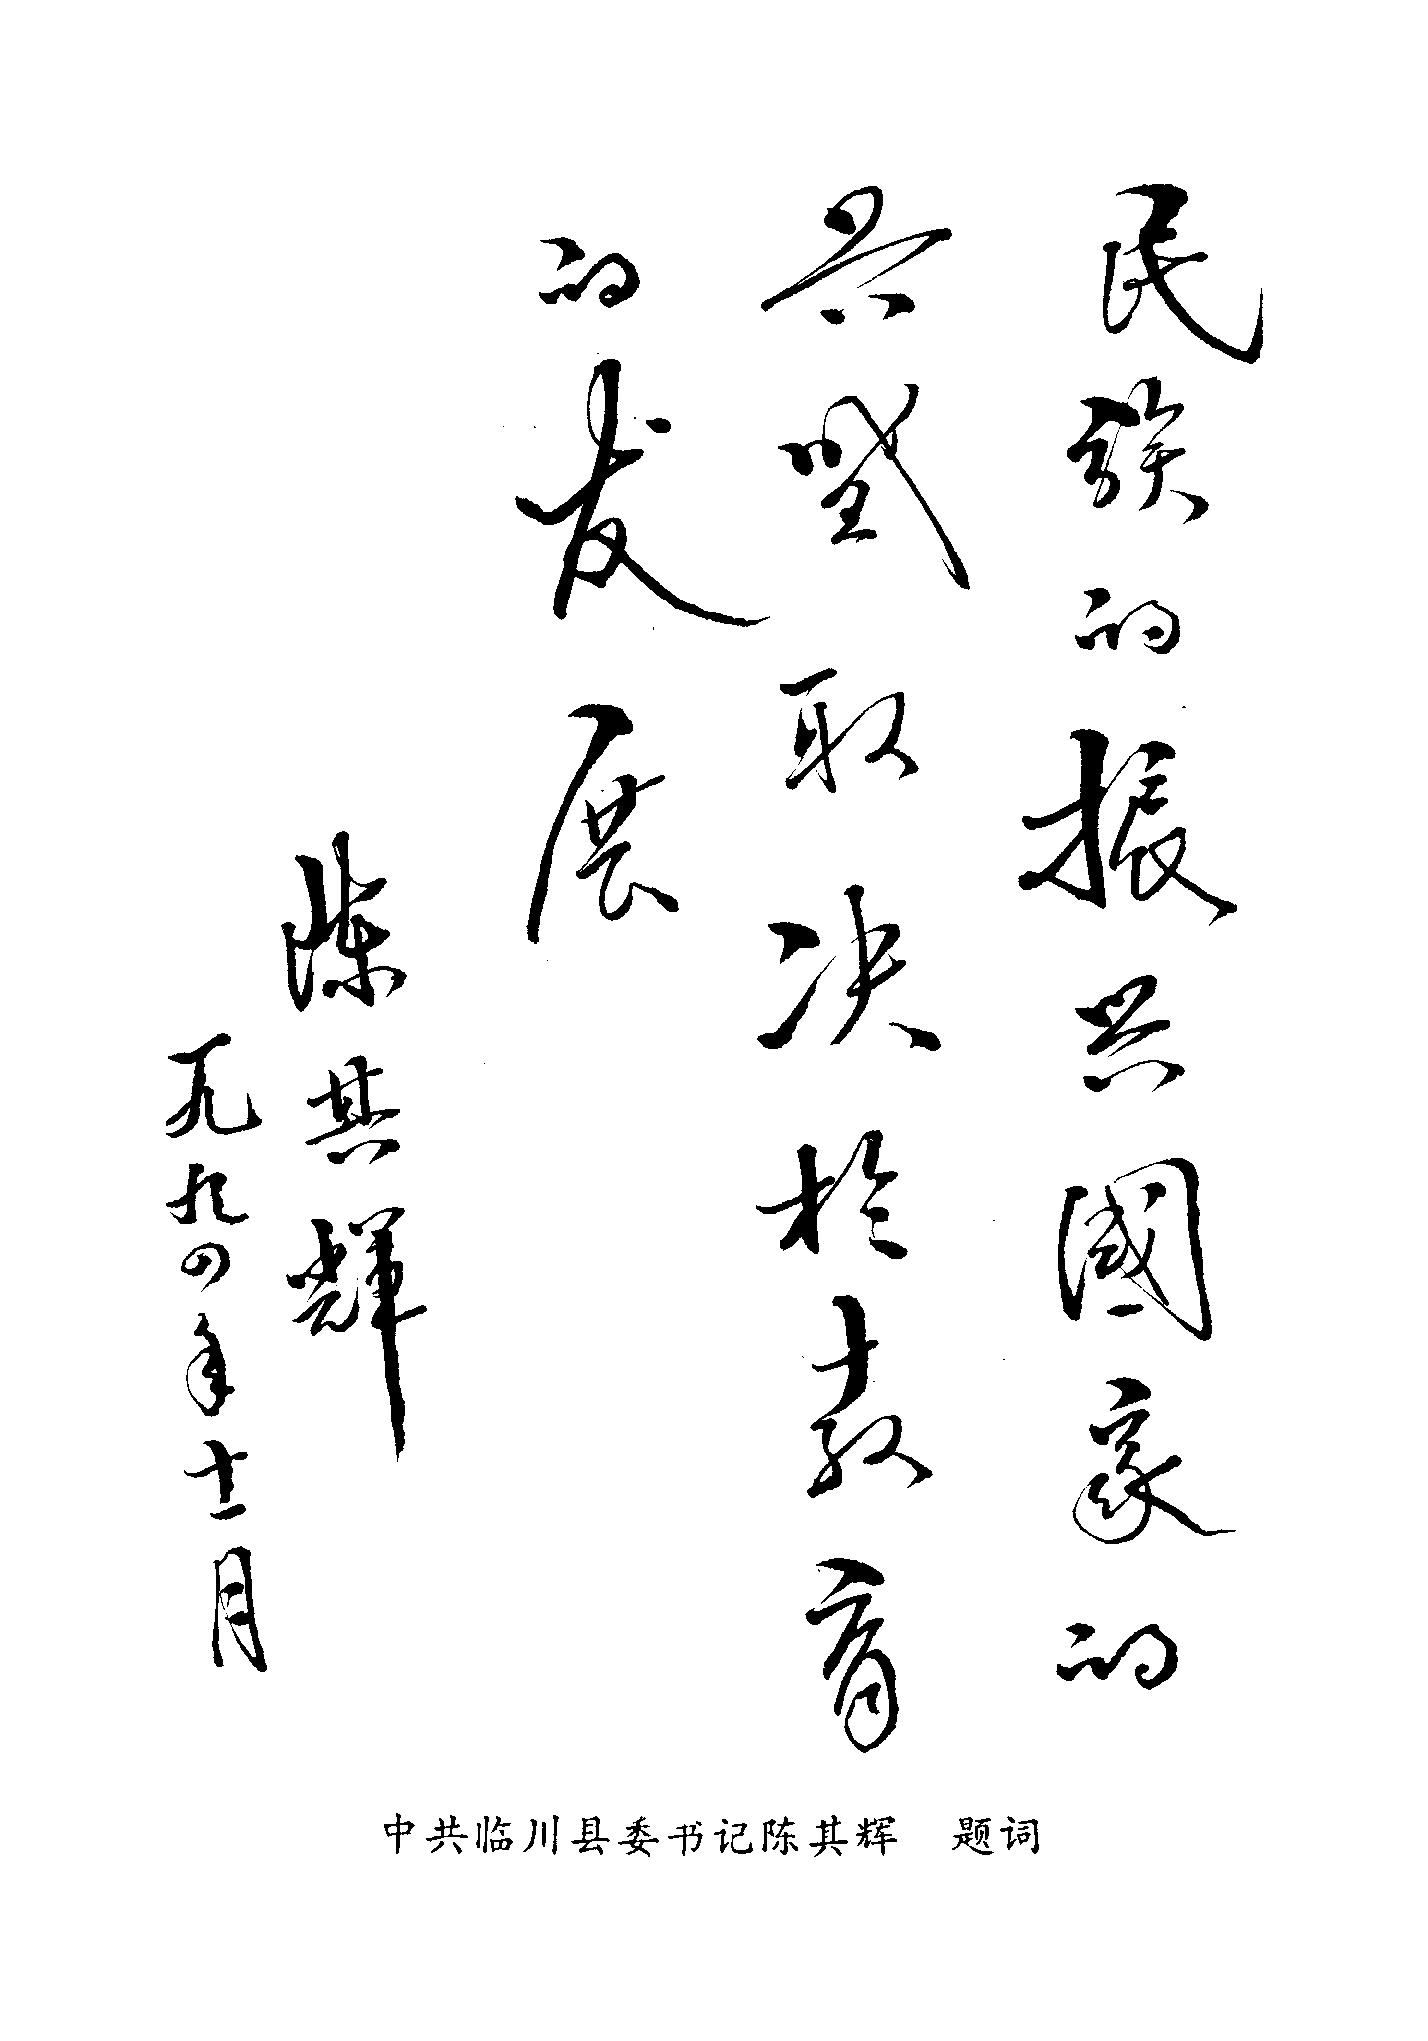 民族的振兴國家的
兴盛取决於教育
的发展
陈其輝
一九九四年十一月
中共临川县委书记陈其辉　题词